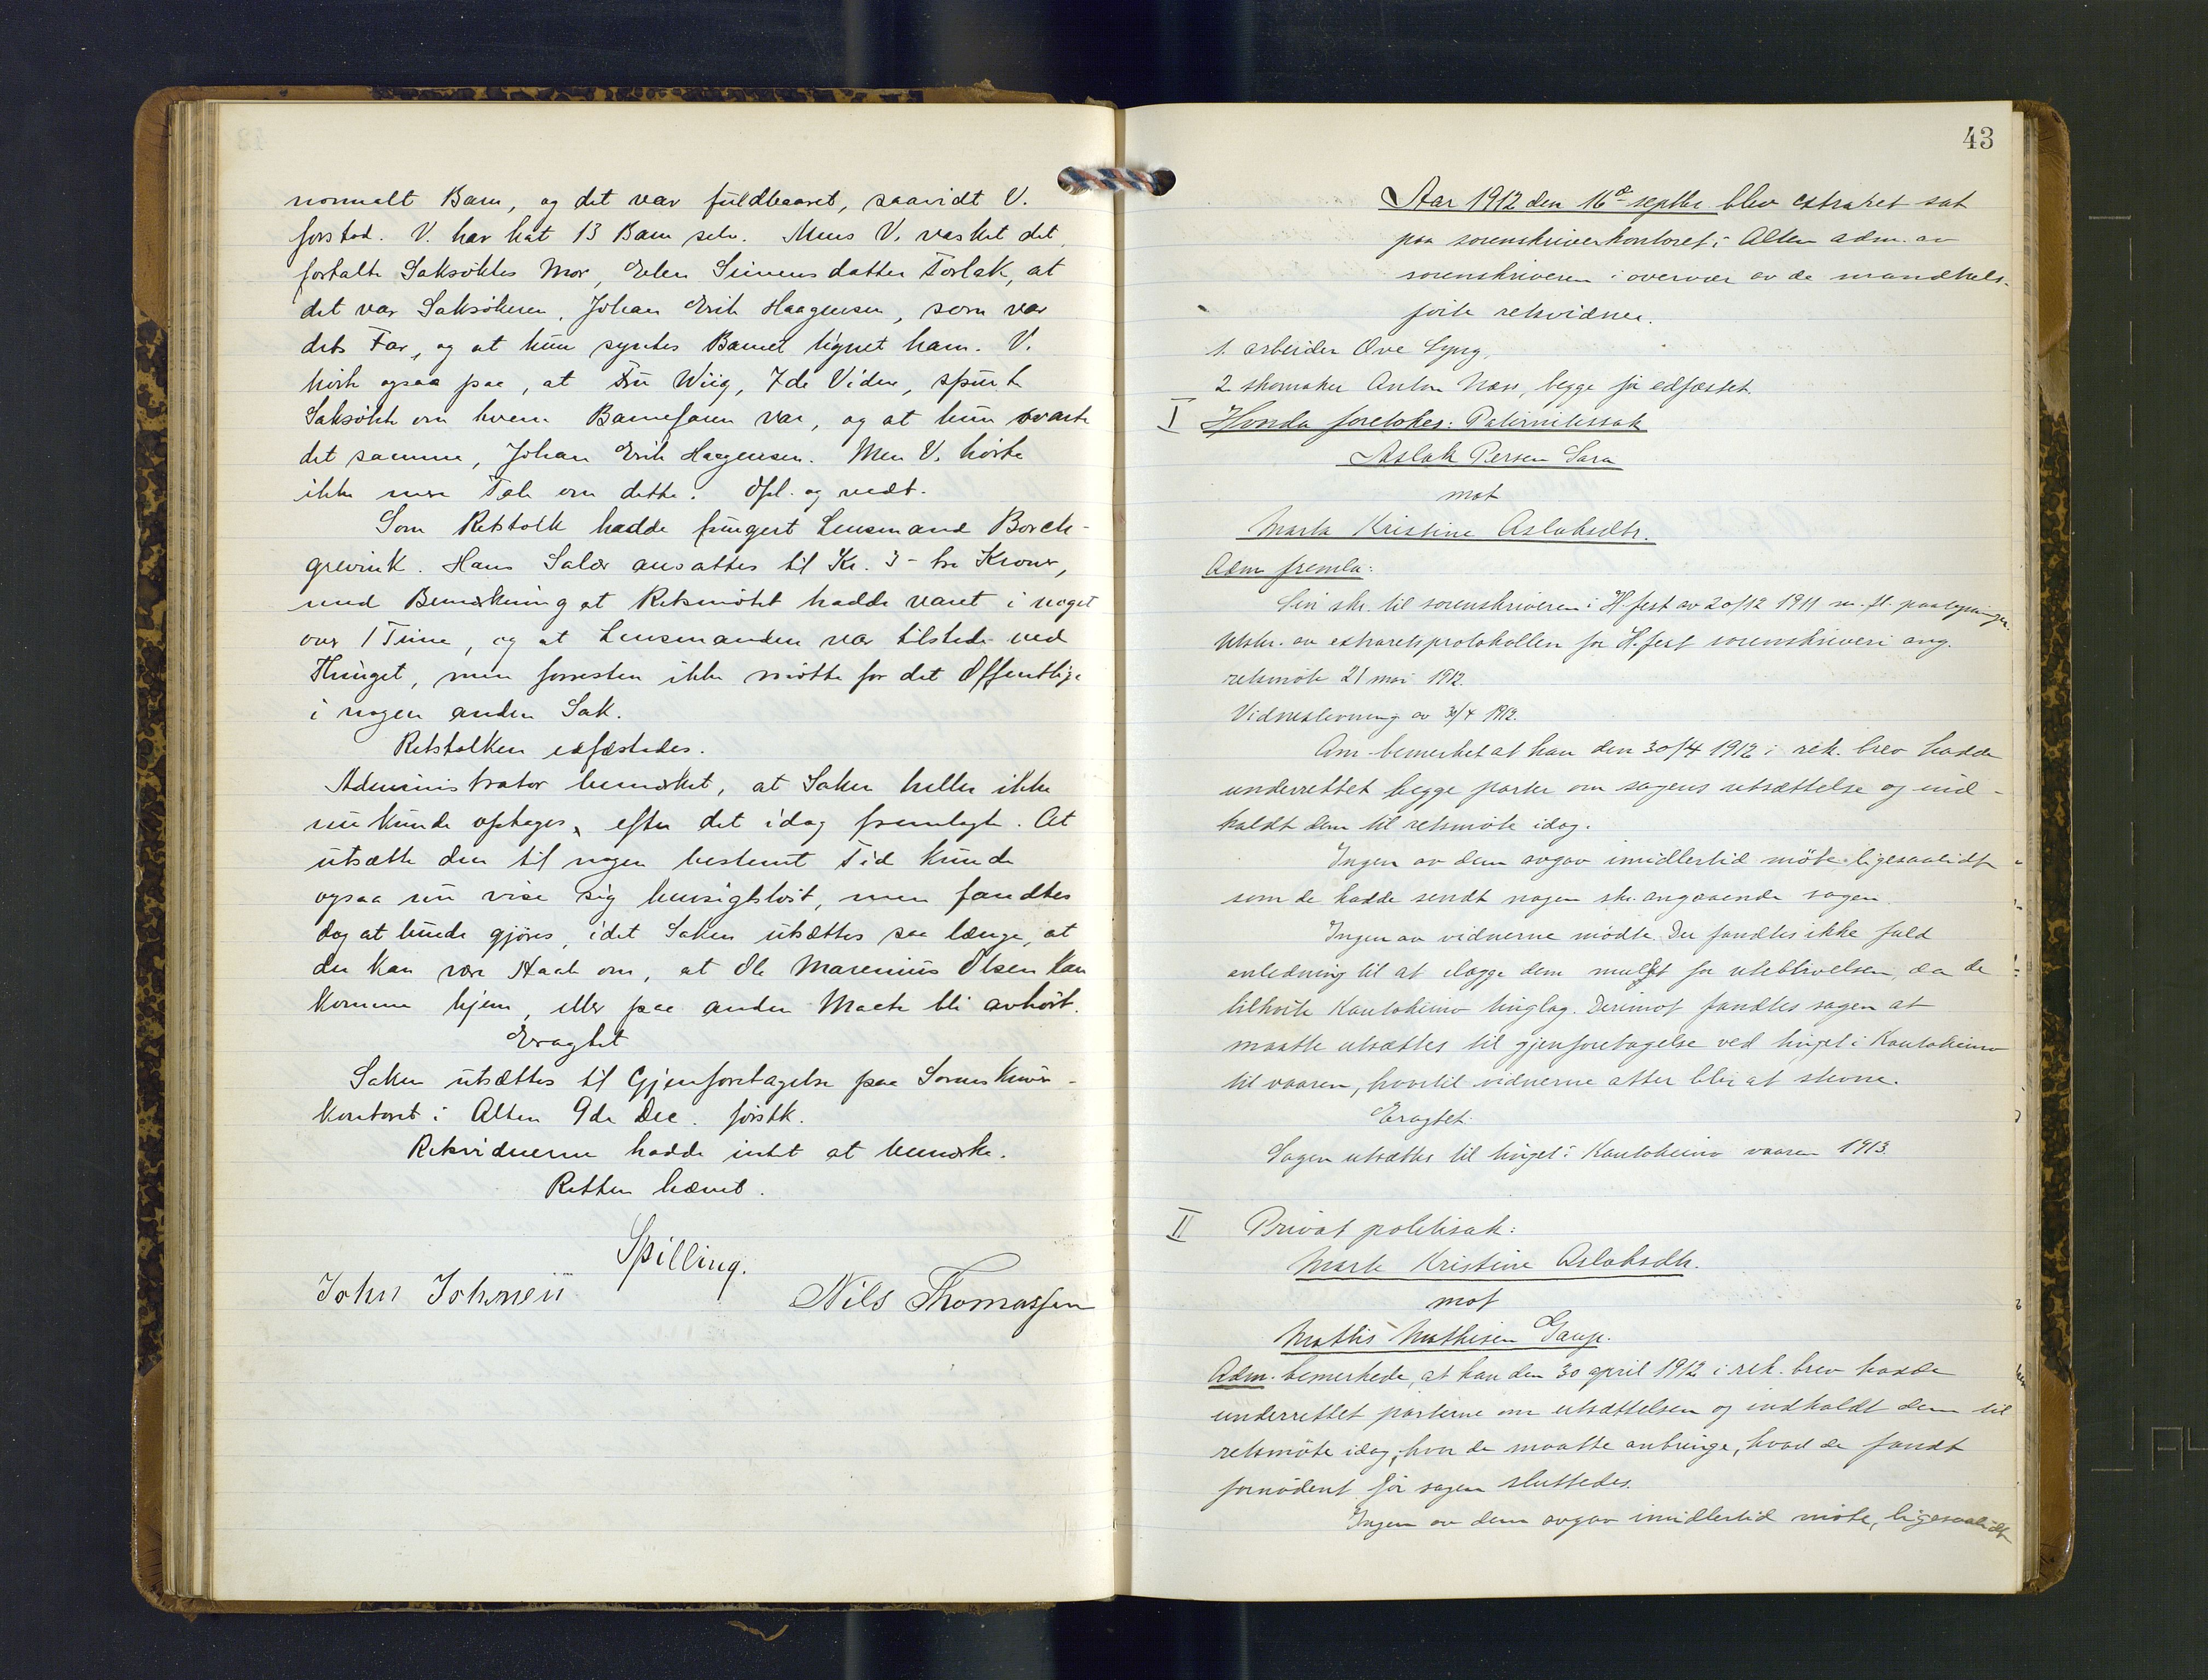 normalt Barn, og det var fuldbaaret, saavidt V.
forstod. V. har hat 13 Barn selv. Mens V. vasket det,
fortalte Saksøktes Mor, Elen Simensdatter Torlak, at
det var Saksøkeren, Johan Erik Haagensen, som var
dets Far, og at hun syntes Barnet lignet ham. V.
hørte ogsaa paa, at Fru Wiig, 7de Vidne, spurte
Saksøkte om hvem Barnefaren var, og at hun svarte
det samme, Johan Erik Haagensen. Men V. hørte
ikke mere Tale om dette. Opl. og vedt.
Som Retstolk hadde fungert Lensmand Borch-
grevink. Hans Salær ansattes til Kr. 3 - tre Kroner,
med Bemerkning at Retsmøtet hadde varet i noget
over 1 Time, og at Lensmanden var tilstede ved
Thinget, men forresten ikke møtte for det Offentlige
i nogen anden Sak.
Retstolken edfæstedes.
Administrator bemerket, at Saken heller ikke
nu kunde optages, efter det idag fremlagte. At
utsætte den til nogen bestemt Tid kunde
ogsaa nu vise sig hensigtsløst, men fandtes
dog at burde gjøres, idet Saken utsættes saa længe, at
der kan være Haab om, at Ole Marenius Olsen kan
komme hjem, eller paa anden Maate bli avhørt.
Eragtet
Saken utsættes til Gjenforetagelse paa Sorenskriver-
kontoret i Alten 9de Dec. førstk.
Retsvidnerne hadde intet at bemerke.
Retten hævet.
Spilling.
John Johnsen Nils Thomassen
43
Aar 1912 den 16de septbr. blev extraret sat
paa sorenskriverkontoret i Alten adm. av
sorenskriveren i overvær av de mandtals-
førte retsvidner.
1. arbeider Ove Lyng,
2. skomaker Anton Næss, begge før edfæstet.
I Hvorda foretokes: Paternitetssak
Aslak Persen Sara
mot
Marta Kristine Aslaksdtr.
Adm fremla:
Sin skr. til sorenskriveren i H.fest av 20/12 1911 m. fl. paategninger.
Utskr. av extraretsprotokollen for H.fest sorenskriveri ang.
retsmøte 21 mai 1912.
Vidnestevning av 30/4 1912.
Am. bemerket at han den 30/4 1912 i rek. brev hadde
underrettet begge parter om sagens utsættelse og ind-
kaldt dem til retsmøte idag.
Ingen av dem avgav imidlertid møte ligesaalidt
som de hadde sendt nogen skr. angaaende sagen.
Ingen av vidnerne mødte. Der fandtes ikke fuld
anledning til at ilægge dem mulkt for uteblivelsen, da de
tilhørte Kautokeino tinglag. Derimot fandtes sagen at
maatte utsættes til gjenforetagelse ved tinget i Kautokeino
til vaaren, hvortil vidnerne atter blir at stevne.
Eragtet:
Sagen utsættes til tinget i Kautokeino vaaren 1913.
II Privat politisak:
Marte Kristine Aslaksdtr.
mot
Mathis Mathisen Gaup.
Adm. bemerkede, at han den 30 april 1912 i rek. brev hadde
underrettet parterne om utsættelsen og indkaldt dem til
retsmøte idag, hvor de maatte anbringe, hvad de fandt
fornødent før sagen sluttedes.
Ingen av dem avgav imidlertid møte, ligesaalidt